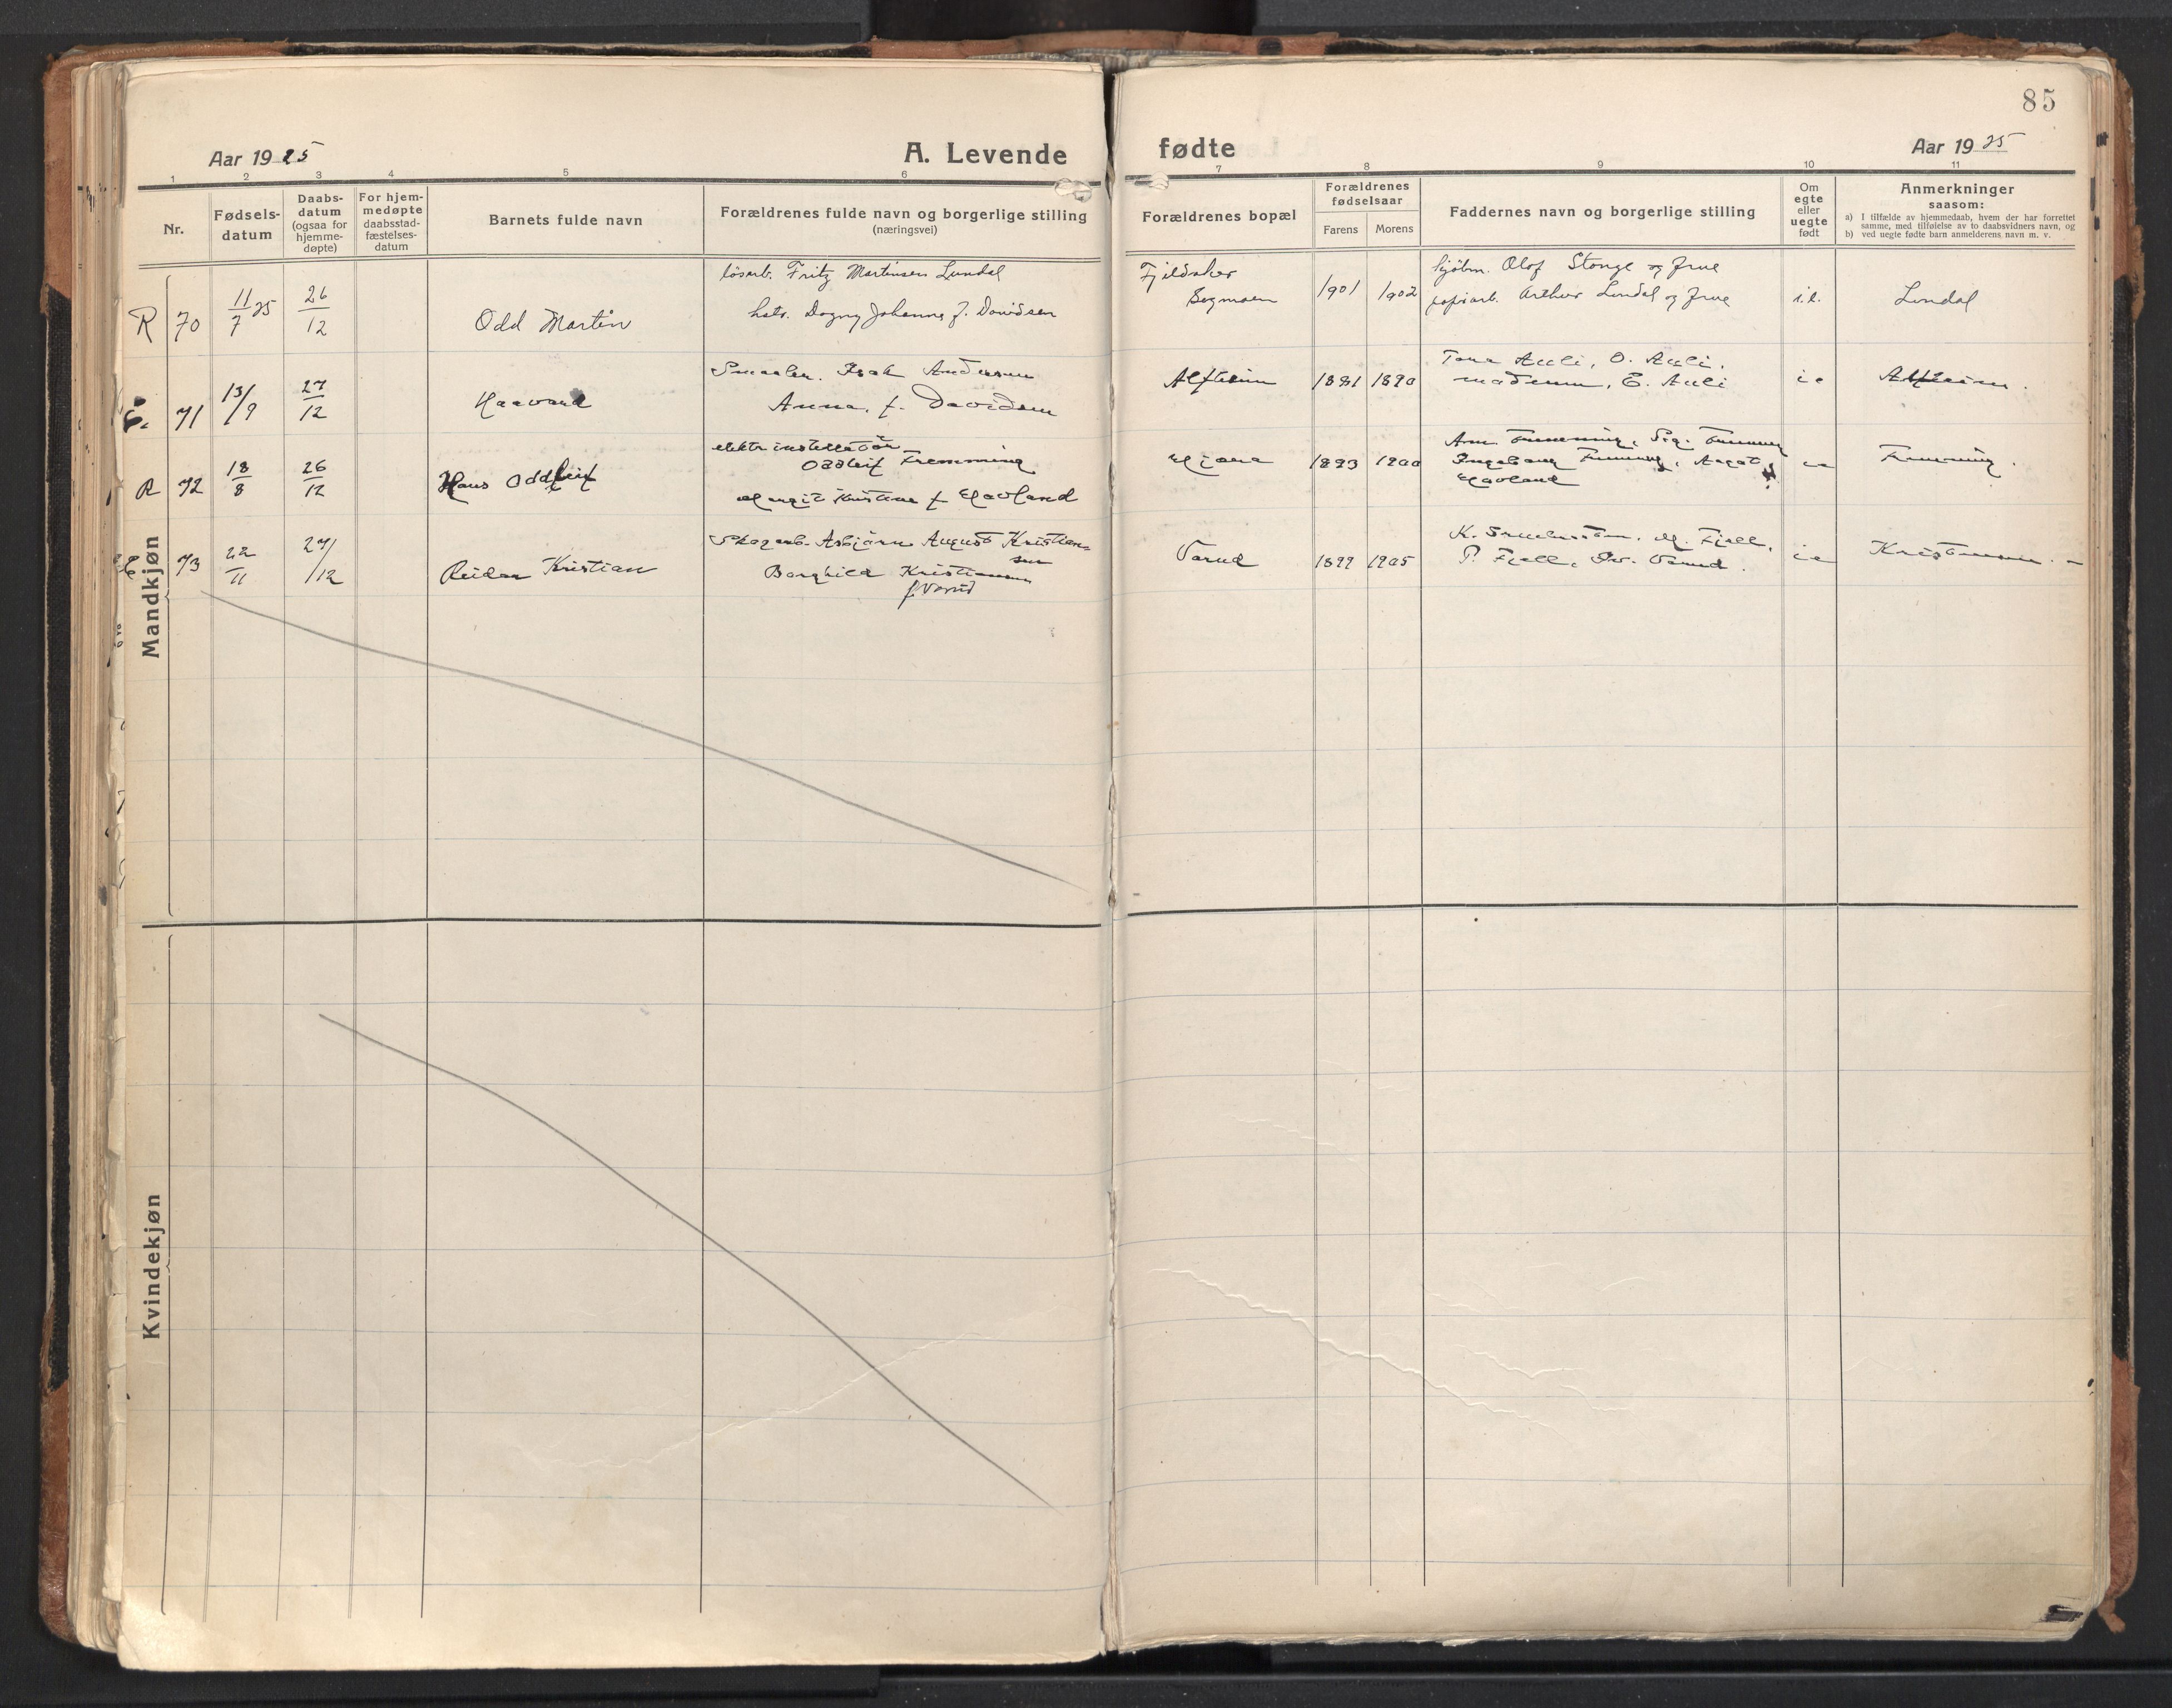 85
Aar 1925
A. Levende fødte
Aar 1925
1 2 3 4 5 6 7 8 9 10 11
Nr.
Fødsels-
datum
Daabs-
datum
(ogsaa for
hjemme-
døpte)
For hjem-
medøpte
daabsstad-
fæstelses-
datum
Barnets fulde navn
Forældrenes fulde navn og borgerlige stilling
(næringsvei)
Forældrenes bopæl
Forældrenes
fødselsaar
Farens Morens
Faddernes navn og borgerlige stilling
Om
egte
eller
uegte
født
Anmerkninger
saasom:
a) I tilfælde av hjemmedaab, hvem der har forrettet
samme, med tilføielse av to daabsvidners navn, og
b) ved uegte fødte barn anmelderens navn m. v.
Mandkjøn
R 70
11/7 25
26/12
Odd Martin
løsarb. Fritz Martinsen Lundal
hstr. Dagny Johanne f. Davidsen
Fjeldaker
1901 1902
kjøbm. Olof Stonge og frue
papirarb. Arthur Lundal og frue
i.e.
Lundal
E. 71
13/9
27/12
Haavard
Isak Andersen
Anna, f. Davidsen
Alfheim
1881 1890
Auli, O. Auli,
E. Auli
i e
Alfheim.
R 72
18/8
26/12
Hans Oddleif
elektr installatør
Oddleif Fremming
Margit Kristine f Havland
1893 1900
Fremming, Sig. Fremming
Ingeborg Fremming,
Havland
Fremming.
E 73
22/11
27/12
Reidar Kristian
Skogarb. Asbjørn August Kristian-
sen
Borghild Kristiansen
f. Varud
Varud
1899 1905
M. Fjell,
P. Fjell, Varud.
i e
Kristiansen. -
Kvindekjøn